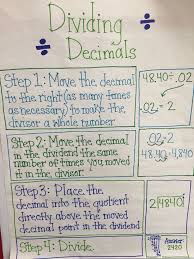 Dividing
÷ ÷
Decimals
Step 1: Move the decimal
to the right (as many times
as necessary) to make the
divisor a whole number
48.40 ÷ .02
.02 = 2
Step 2: Move the decimal
in the dividend the same
number of times you moved
it in the divisor.
.02 = 2
48.40 → 4,840
Step 3: Place the
decimal into the quotient
directly above the moved
decimal point in the dividend
2)4840
Step 4: Divide.
Answer
2420